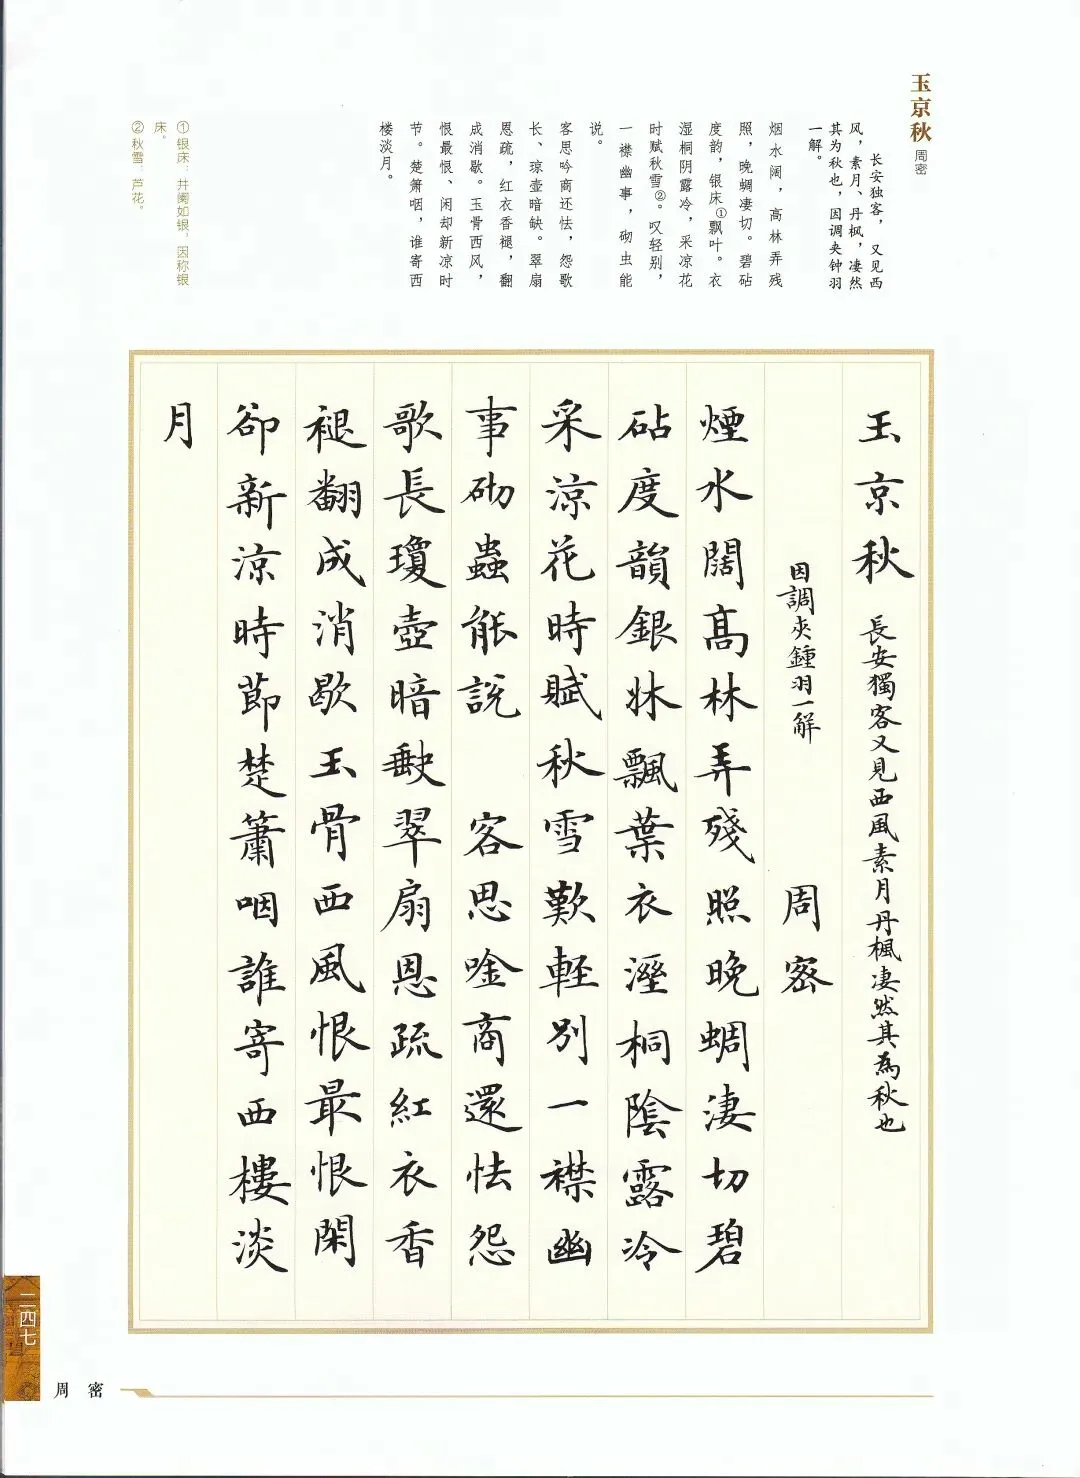 玉京秋 周密
长安独客，又见西
风，素月、丹枫，凄然
其为秋也，因调夹钟羽
一解。
烟水阔，高林弄残
照，晚蜩凄切。碧砧
度韵，银床①飘叶。衣
湿桐阴露冷，采凉花
时赋秋雪②。叹轻别，
一襟幽事，砌虫能
说。
客思吟商还怯，怨歌
长、琼壶暗缺。翠扇
恩疏，红衣香褪，翻
成消歇。玉骨西风，
恨最恨、闲却新凉时
节。楚箫咽，谁寄西
楼淡月。
①银床：井阑如银，因称银
床。
②秋雪：芦花。
玉京秋 長安獨客又見西風素月丹楓凄然其為秋也
因調夾鍾羽一解 周密
煙水闊高林弄殘照晚蜩淒切碧
砧度韻銀牀飄葉衣溼桐陰露冷
采涼花時賦秋雪歎輕別一襟幽
事砌蟲能說 客思唫商還怯怨
歌長瓊壺暗缺翠扇恩疏紅衣香
褪翻成消歇玉骨西風恨最恨閑
卻新涼時節楚簫咽誰寄西樓淡
月
二四七
周密